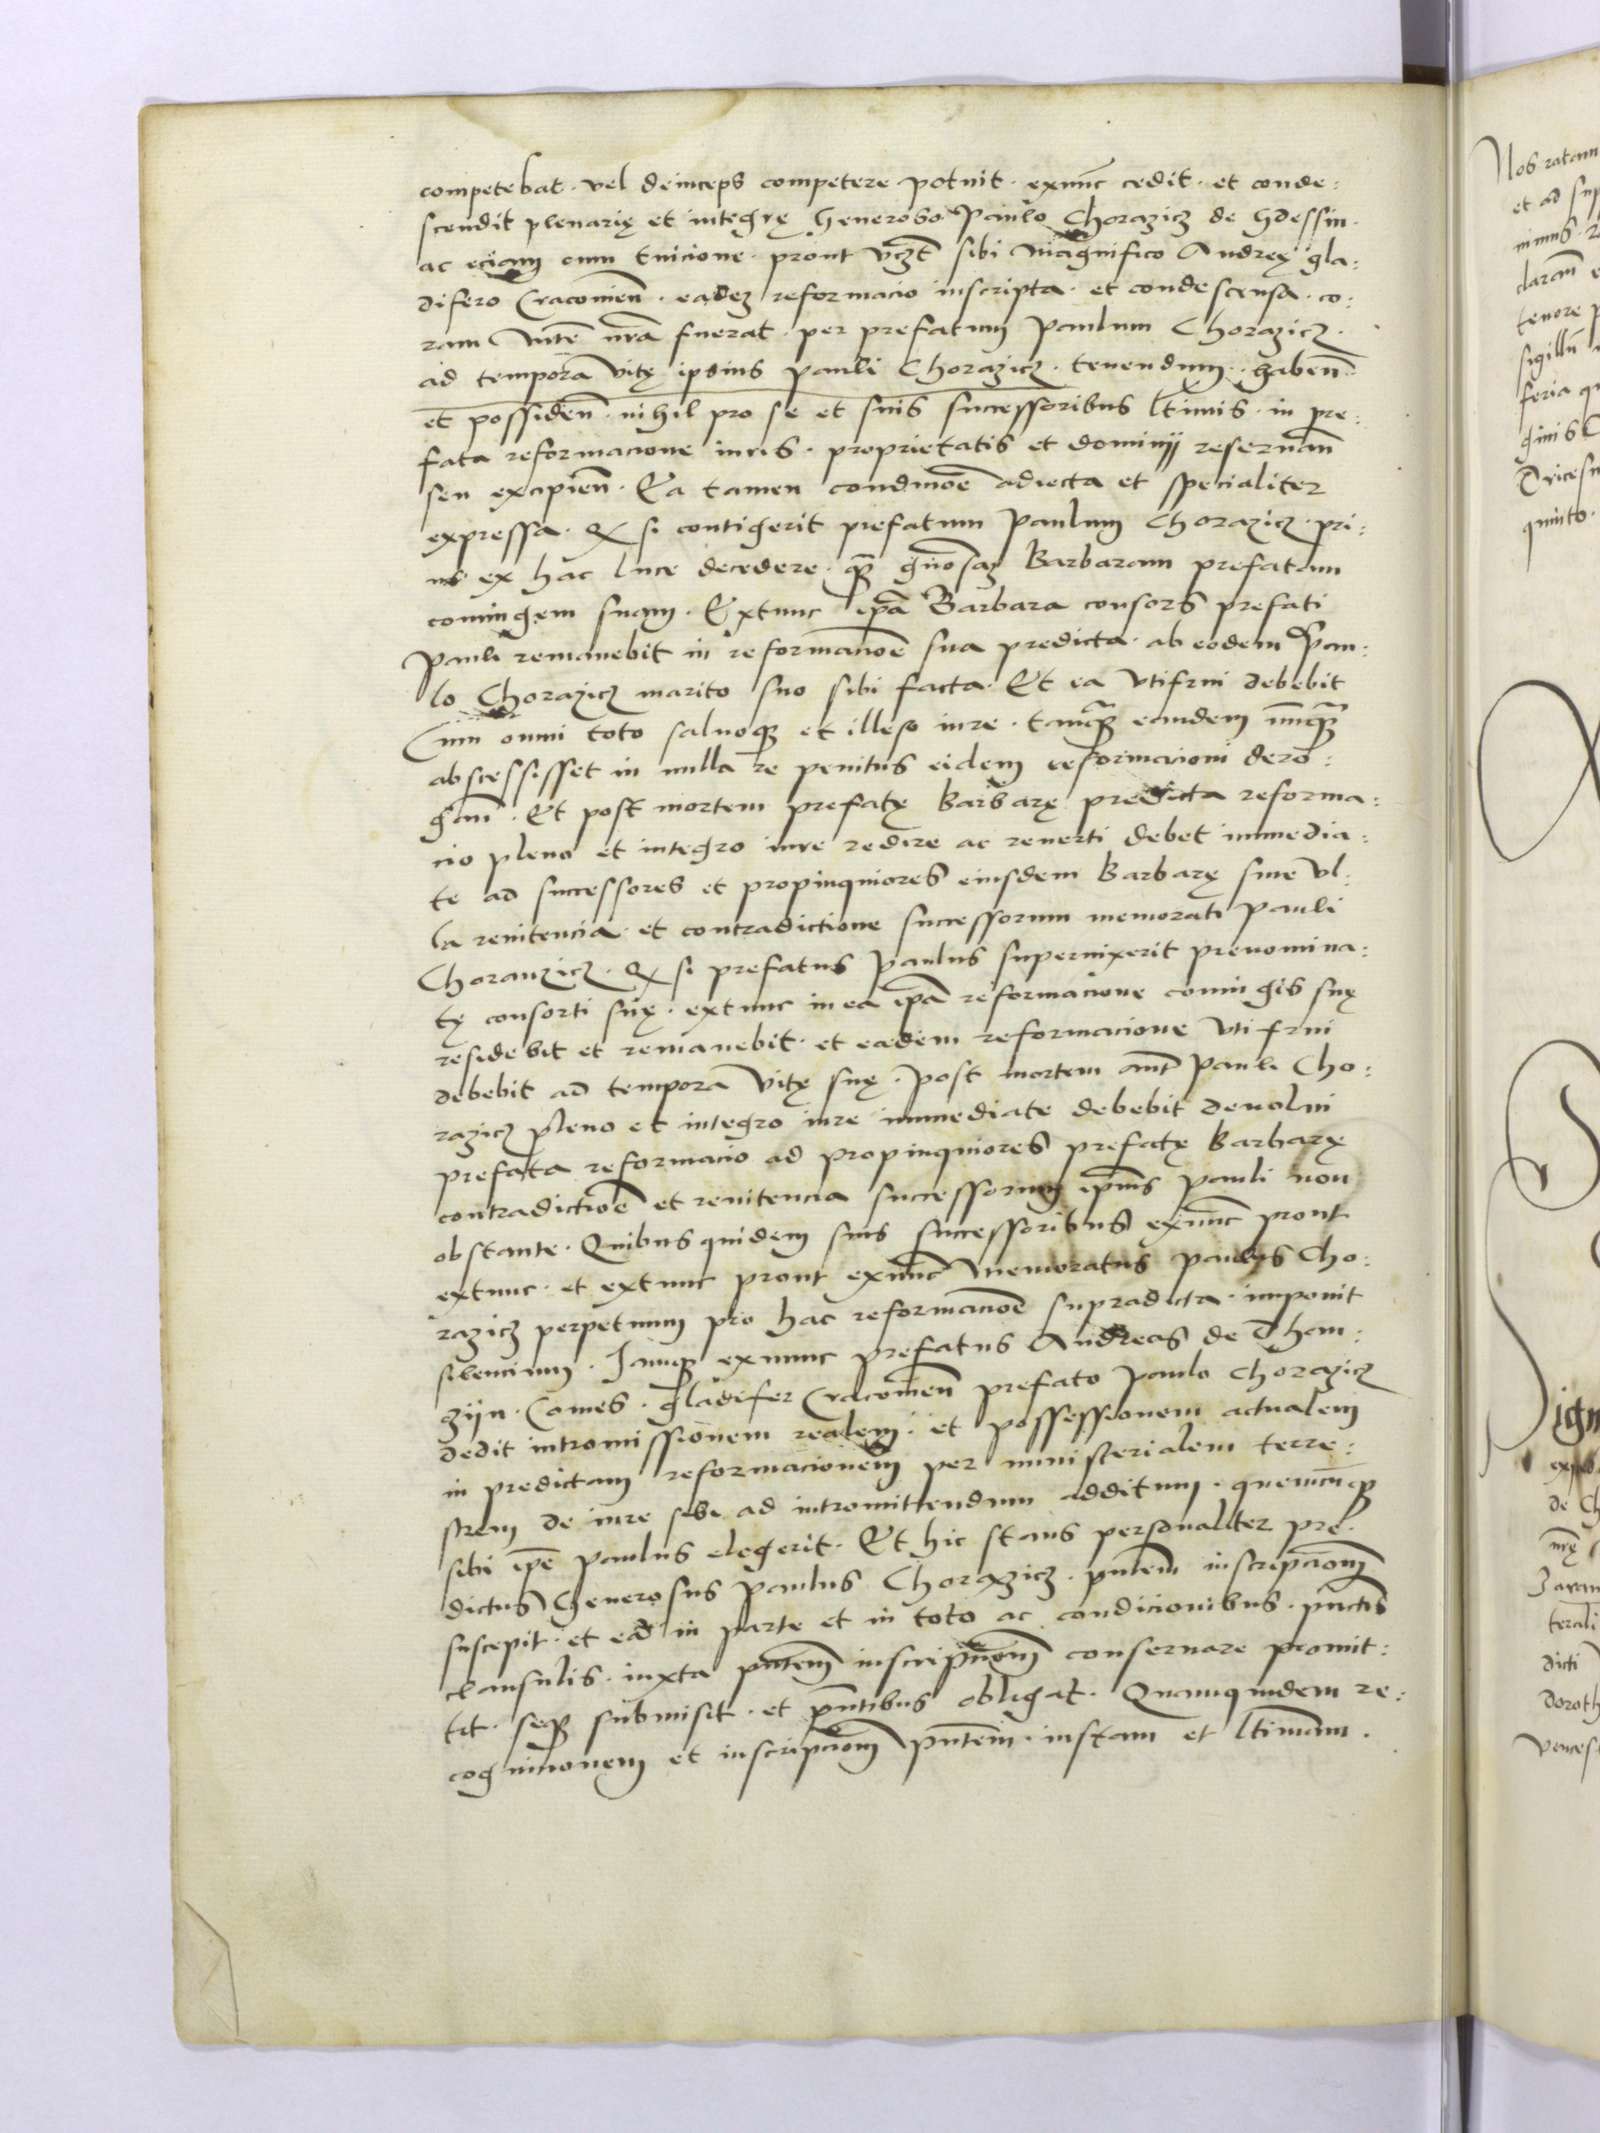 competebat · vel deinceps competere potuit · exnũc cedit · et conde:
scendit plenarię et integrę Generoso Paulo Chorazicz de Gdessin ·
ac eciam cum euicione · prout vczt sibi Magnifico Andreę gla:
difero Cracouień · eadez reformacio inscripta · et condescensa · co:
ram Mte nrã fuerat · per prefatum Paulum Chorazicz ·
ad tempora vitę ipsius Pauli Chorazicz · tenendum · habeñ ·
et possideñ · nihil pro se et suis successoribus ltimis · in pre:
fata reformacione iuris · proprietatis et dominij reseruañ
seu excipieñ · Ea tamen condicioẽ adiecta et specialiter
expressa · Q si contigerit prefatum Paulum Chorazicz · pri:
us ex hac luce decedere · q̃ gñosaz Barbaram prefatam
coniugem suam · Extunc ip̃a Barbara consors prefati
Pauli remanebit in reformacioẽ sua predicta · ab eodem Pau:
lo Chorazicz marito suo sibi facta · Et ea vtifrui debebit
Cum omni toto saluoq; et illeso iure · tamq̃ eandem nunq̃
abscessisset in nulla re penitus eidem reformacioni dero:
gañ · Et post mortem prefatę Barbarę predicta reforma:
cio pleno et integro iure redire ac reuerti debet immedia:
te ad successores et propinquiores eiusdem Barbarę sine vl:
la renitencia · et contradictione successorum memorati Pauli
Choranzicz · Q si prefatus Paulus superuixerit prenomina:
tę consorti suę · extunc in ea ip̃a reformacione coniugis suę
residebit et remanebit · et eadem reformacione vtifrui
debebit ad tempora vitę suę · Post mortem aũt Pauli Cho:
razicz pleno et integro iure immediate debebit deuolui
prefata reformacio ad propinquiores prefatę Barbarę
contradictioẽ et renitencia successorum ip̃ius Pauli non
obstante · Quibusquidem suis successoribus exnũc prout
extunc · et extunc prout exnũc Memoratus Paulus Cho:
razicz perpetuum pro hac reformacioẽ supradicta · imponit
silencium · Iamq; exnunc prefatus Andreas de Tham:
zijn · Comes · gladifer Cracouień prefato Paulo Chorazicz
dedit intromissionem realem · et possessionem actualem
in predictam reformacionem per ministerialem terre:
strem de iure sibi ad intromittendum additum · quemcũq;
sibi ip̃e Paulus elegerit · Et hic stans personaliter pre:
dictus Generosus Paulus Chorazicz · p̃ntem inscripcioñ
suscepit · et eañ in parte et in toto ac condicionibus · p̃nctis
clausulis · iuxta p̃ntem inscripcioñ conseruare promit:
tit · seq; submisit · et p̃ntibus obligat · Quamquidem re:
cognicionem et inscripcioñ p̃ntem · iustam et ltimam ·